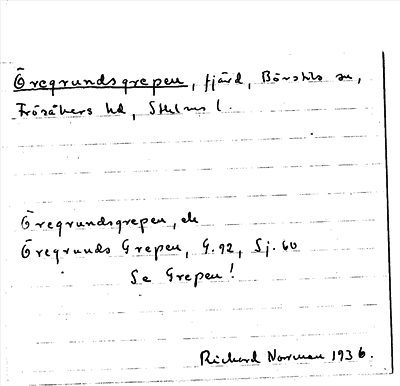 Öregrundsgrepen, fjärd, Börstils sn,
Frösåkers hd, Sthlms l.
Öregrundsgrepen, ek
Öregrunds Grepen, G. 92, Sj. 60
Se Grepen!
Richard Norrman 1936.